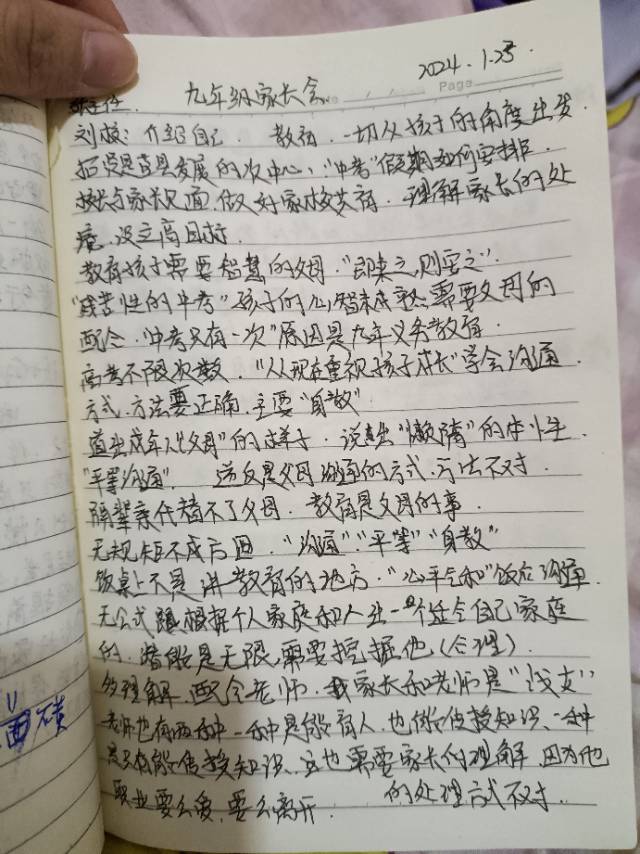 九年级家长会 2024.1.25.
Page
刘校：介绍自己. 教育，一切从孩子的角度出发
发展的次中心，"中考"假期如何安排.
校长与家长见面，做好家校共育. 理解家长的处
境，设立高目标.
教育孩子需要智慧的父母."即来之，则安之".
的中考"孩子的心智未成熟，需要父母的
配合."中考只有一次"原因是九年义务教育.
高考不限次数."从现在重视孩子成长"学会沟通
方式，方法要正确，主要"身教"
成年人"父母"的样子. 说出"懒惰"的
"平等沟通". 逆反是父母沟通的方式，方法不对.
隔辈亲代替不了父母. 教育是父母的事.
无规矩不成方圆."沟通""平等""身教"
饭桌上不是讲教育的地方."心平气和"饭后沟通.
无公式 根据个人家庭和人生一个适合自己家庭
的. 潜能是无限，需要挖掘他（合理）
多理解，配合老师. 我家长和老师是"战友"
老师也有两种 一种是能育人，也能传授知识、一种
只能传授知识、这也需要家长的理解 因为他
职业要么爱，要么离开. 的处理方式不对.
不